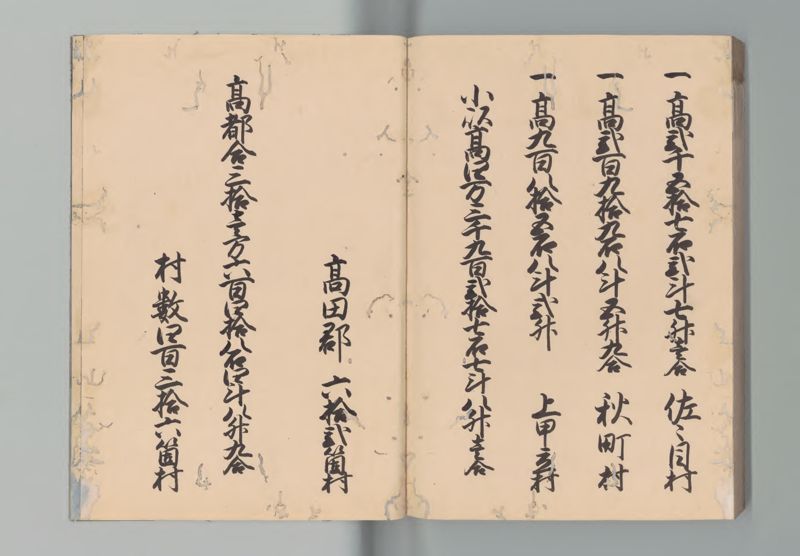 一高弐千五拾七石弐斗七升壱合 佐々目村
一高弐百九拾九石八斗五升九合 秋町村
一高九百八拾五石八斗弐升 上甲立村
小以高四万三千九百弐拾七石七斗八升壱合
高田郡 六拾弐箇村
高都合三拾壱万六百四拾八石四斗八升九合
村数四百三拾六箇村